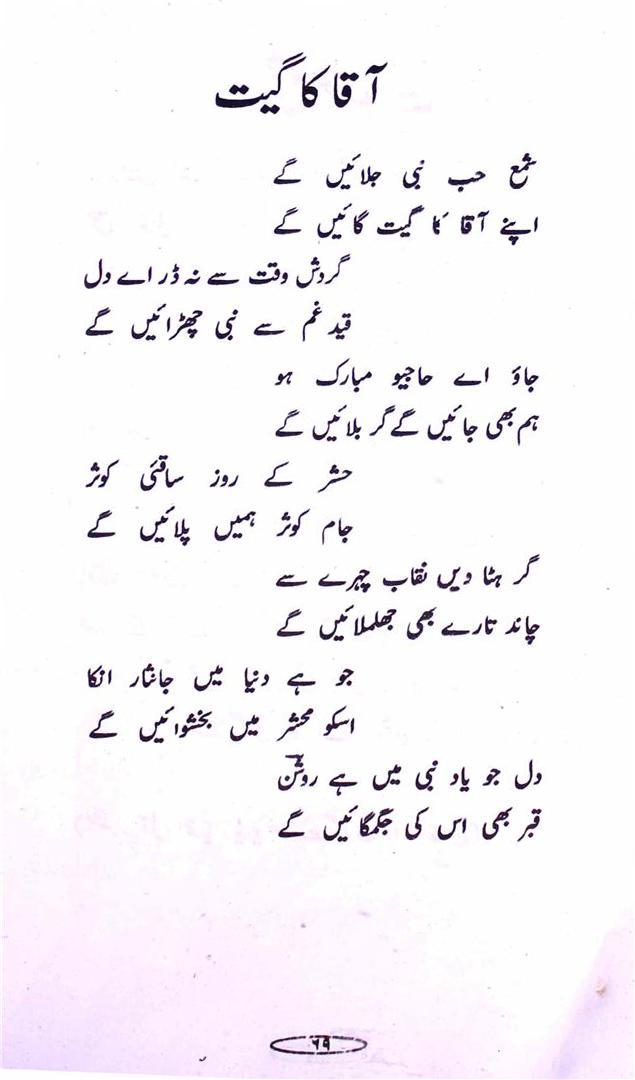 آقا کا گیت
شمع حب نبی جلائیں گے
اپنے آقا کا گیت گائیں گے
گردش وقت سے نہ ڈر اے دل
قید غم سے نبی چھڑائیں گے
جاؤ اے حاجیو مبارک ہو
ہم بھی جائیں گے گر بلائیں گے
حشر کے روز ساقئی کوثر
جام کوثر ہمیں پلائیں گے
گر ہٹا دیں نقاب چہرے سے
چاند تارے بھی جھلملائیں گے
جو ہے دنیا میں جانثار انکا
اسکو محشر میں بخشوائیں گے
دل جو یاد نبی میں ہے روشن
قبر بھی اس کی جگمگائیں گے
۶۹